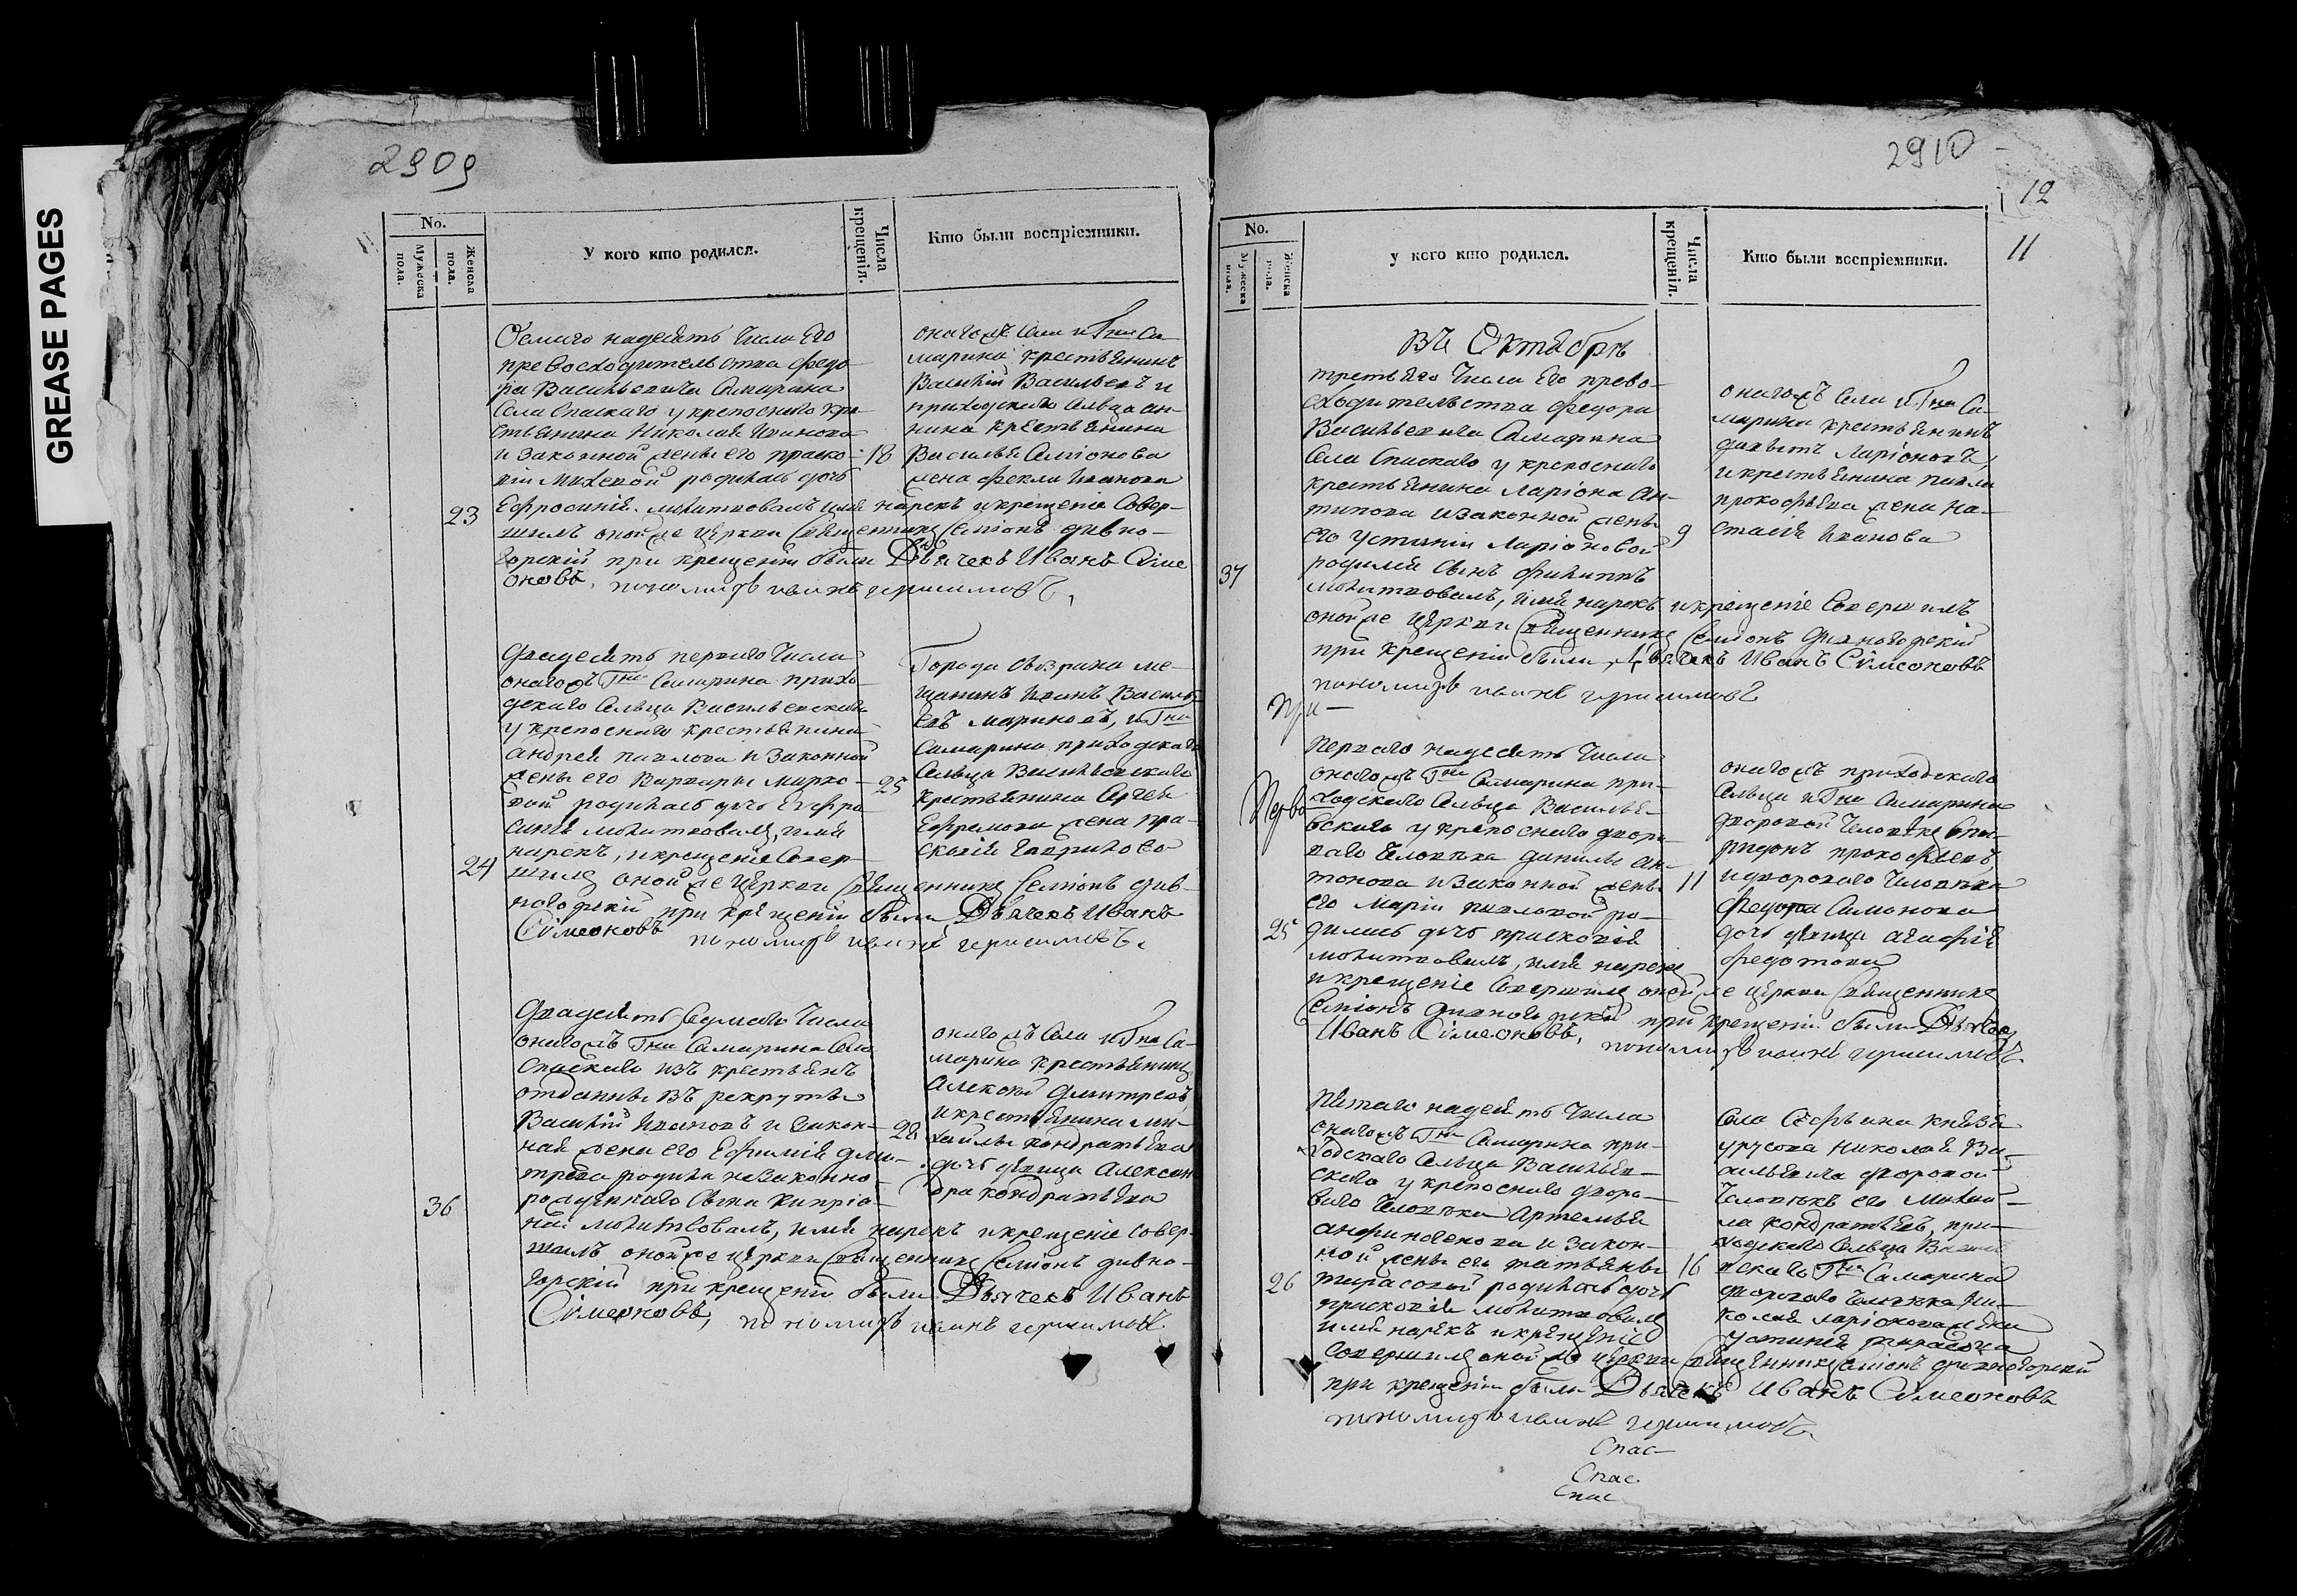 GREASE PAGES
2909
No.
Мужеска пола.
Женска пола.
У кого кто родился.
Числа крещенія.
Кто были воспріемники.
Осмаго надесять числа Его
превосходительства Федо-
ра Васильевича Самарина
села Спаскаго у крепоснаго кре-
стьянина Николая Иванова
и законной жены его праско-
віи Михевой родилась дочь
23
Ефросинія. молитвовалъ имя нарекъ и крещеніе совер-
шилъ оной же церкви Священникъ Семіонъ дивно-
горскій при крещеніи были Дьячекъ Иванъ Симе
оновъ, пономарь иванъ герасимовъ.
18
оногожъ села и Гна Са-
марина крестьянинъ
Василій Васильевъ и
приходскаго сельца ан-
нина крестьянина
Василья Семіонова
жена Фекла Иванова
Двадесять перваго числа
оногожъ Гна Самарина прихо-
дскаго сельца Васильевскаго
у крепоснаго крестьянина
андрея павлова и законной
жены его Варвары Марко-
вой родилась дочь Евфро-
синія молитвовалъ, имя
нарекъ, и крещеніе совер-
24
шилъ оной же церкви Священникъ Семіонъ див-
ногорскій при крещеніи были Дьячекъ Иванъ
Симеоновъ пономарь иванъ герасимовъ.
25
Города ме-
щанинъ Иванъ Василь-
евъ Мариновъ, и Гна
Самарина приходскаго
сельца Васильевскаго
крестьянина Сергея
Ефремова жена пра-
сковія Гаврилова
Двадесять седмаго числа
оногожъ Гна Самарина села
Спаскаго изъ крестьянъ
отданны въ рекруты
Василій Ивановъ и закон-
ная жена его Ефимія дми-
трева родила незаконно-
36
рожденнаго сына Кипріа-
на молитвовалъ, имя нарекъ и крещеніе совер-
шилъ оной же церкви Священникъ Семіонъ дивно-
горскій при крещеніи были Дьячекъ Иванъ
Симеоновъ, пономарь иванъ герасимовъ.
28
оногожъ села и Гна Са-
марина крестьянинъ
Алексей Дмитревъ,
и крестьянина ми-
хайлы кондратьева
дочь девица Алексан-
дра кондратьева
2910
12
11
No.
Мужеска пола.
Женска пола.
у кого кто родился.
Числа крещенія.
Кто были воспріемники.
въ Октябре
третьяго числа Его прево-
сходительства Федора
Васильевича Самарина
села Спаскаго у крепоснаго
крестьянина Ларіона Ан-
типова и законной жены
его Устиніи Ларіоновой
37
родился сынъ Филиппъ
молитвовалъ, имя нарекъ и крещеніе совершилъ
оной же церкви Священникъ Семіонъ дивногорскій
при крещеніи были, Дьячекъ Иванъ Симеоновъ
пономарь иванъ герасимовъ
9
оногожъ села и Гна Са-
марина крестьянинъ
Ларіоновъ,
и крестьянина павла
прокофьева жена На-
сталья Иванова
При-
Перваго надесять числа
оногожъ Гна Самарина при-
Перво
ходскаго сельца Василье-
вскаго у крепоснаго дворо-
ваго человека данилы Ан-
тонова и законной жены
его Маріи павловой ро-
25
дилась дочь прасковія
молитвовалъ, имя нарекъ
и крещеніе совершилъ оной же церкви Священникъ
Семіонъ дивногорскій при крещеніи были Дьячекъ
Иванъ Симеоновъ, пономарь иванъ герасимовъ
11
оногожъ приходскаго
сельца и Гна Самарина
дворовой человекъ Спи-
ридонъ прокофьевъ
и двороваго человека
Федора Самонова
дочь девица агафія
федотова
Пятаго надесять числа
оногожъ Гна Самарина при-
ходскаго сельца Василев-
скаго у крепоснаго дворо-
ваго человека Артемья
анфиногенова и закон-
ной жены его татьяны
26
тарасовой родилась дочь
прасковія молитвовалъ
имя нарекъ и крещеніе
совершилъ оной же церкви Священникъ Семіонъ дивногорскій
при крещеніи были Дьячекъ Иванъ Симеоновъ
пономарь иванъ герасимовъ.
16
села князя
урусова Николая Ва-
сильевича дворовой
человекъ его Михаи-
ла кондратьевъ, при-
ходскаго сельца Васил
вскаго Гна Самарина
двороваго человека Ни-
колая ларіонова жена
устинія тарасова
Спас-
Спас
Спас